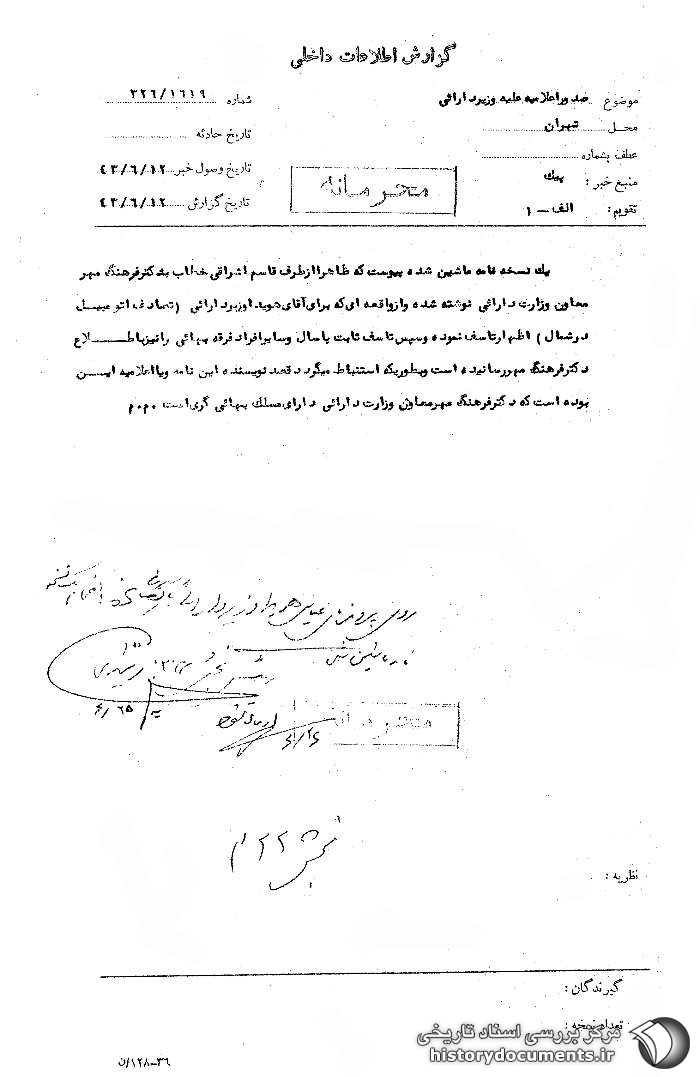 گزارش اطلاعات داخلی
موضوع صدور اعلامیه علیه وزیر دارائی
شماره ۳۲۶/۱۶۱۹
محل تهران
تاریخ حادثه
عطف بشماره
تاریخ وصول خبر ۴۳/۶/۱۲
منبع خبر : پیک
تاریخ گزارش ۴۳/۶/۱۲
تقویم : الف - ۱
محرمانه
یک نسخه نامه ماشین شده پیوست که ظاهرا از طرف قاسم اشراقی خطاب بدکتر فرهنگ مهر
معاون وزارت دارائی نوشته شده و از واقعه ای که برای آقای هویدا وزیر دارائی (تصادف اتومبیل
در شمال) اظهار تاسف نموده و سپس تاسف ثابت پاسال و سایر افراد فرقه بهائی را نیز باطلاع
دکتر فرهنگ مهر رسانیده است و بطوریکه استنباط میگردد قصد نویسنده این نامه و یا اعلامیه این
بوده است که دکتر فرهنگ مهر معاون وزارت دارائی دارای مسلک بهائی گری است م.م
روی پرونده عباس هویدا وزیر دارائی
محرمانه
بخش ۲۲ م
نظریه :
گیرندگان :
تعداد نسخه :
مرکز بررسی اسناد تاریخی
historydocuments.ir
۳۶-۱۲۸/ن